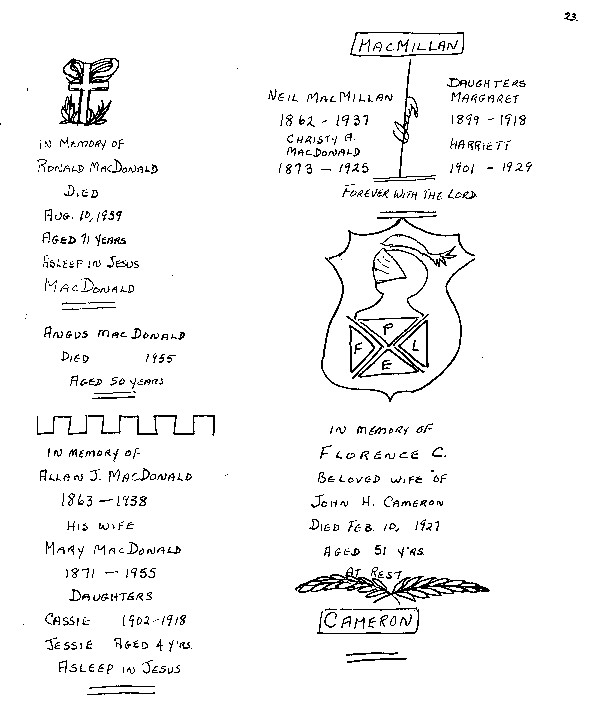 23.
IN MEMORY OF
RONALD MACDONALD
DIED
AUG. 10, 1939
AGED 71 YEARS
ASLEEP IN JESUS
MACDONALD
ANGUS MACDONALD
DIED 1955
AGED 50 YEARS
IN MEMORY OF
ALLAN J. MACDONALD
1863 - 1938
HIS WIFE
MARY MACDONALD
1871 - 1955
DAUGHTERS
CASSIE 1902-1918
JESSIE AGED 4 Y'RS.
ASLEEP IN JESUS
MACMILLAN
NEIL MACMILLAN
1862 - 1937
CHRISTY A.
MACDONALD
1873 - 1925
DAUGHTERS
MARGARET
1899 - 1918
HARRIETT
1901 - 1929
FOREVER WITH THE LORD
P
F L
E
IN MEMORY OF
FLORENCE C.
BELOVED WIFE OF
JOHN H. CAMERON
DIED FEB. 10, 1927
AGED 51 Y'RS.
AT REST
CAMERON